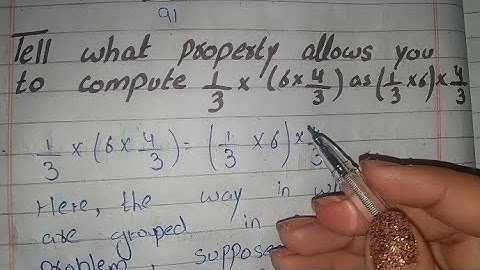 91
Tell what property allows you
to compute 1/3 × (6 × 4/3) as (1/3 × 6) × 4/3
1/3 × (6 × 4/3) = (1/3 × 6) ×
Here, the way in
are grouped in
problem, suppose